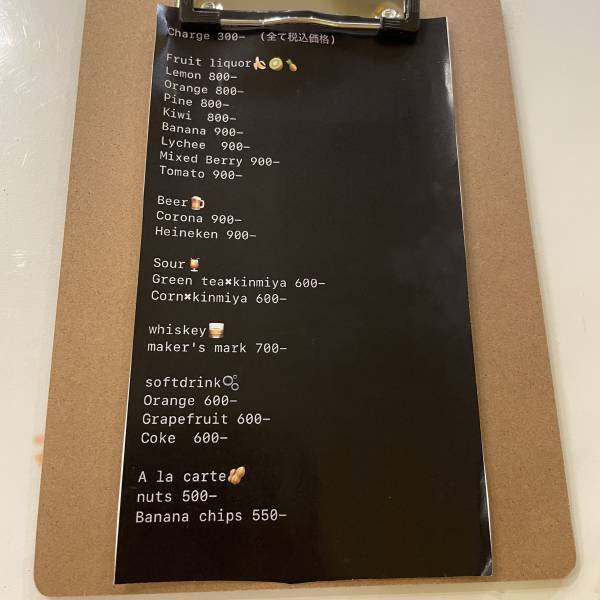 Charge 300− (全て税込価格)
Fruit liquor🍌🥝🍍
Lemon 800−
Orange 800−
Pine 800−
Kiwi 800−
Banana 900−
Lychee 900−
Mixed Berry 900−
Tomato 900−
Beer🍺
Corona 900−
Heineken 900−
Sour🍹
Green tea✖kinmiya 600−
Corn✖kinmiya 600−
whiskey🥃
maker's mark 700−
softdrink🫧
Orange 600−
Grapefruit 600−
Coke 600−
A la carte🥜
nuts 500−
Banana chips 550−